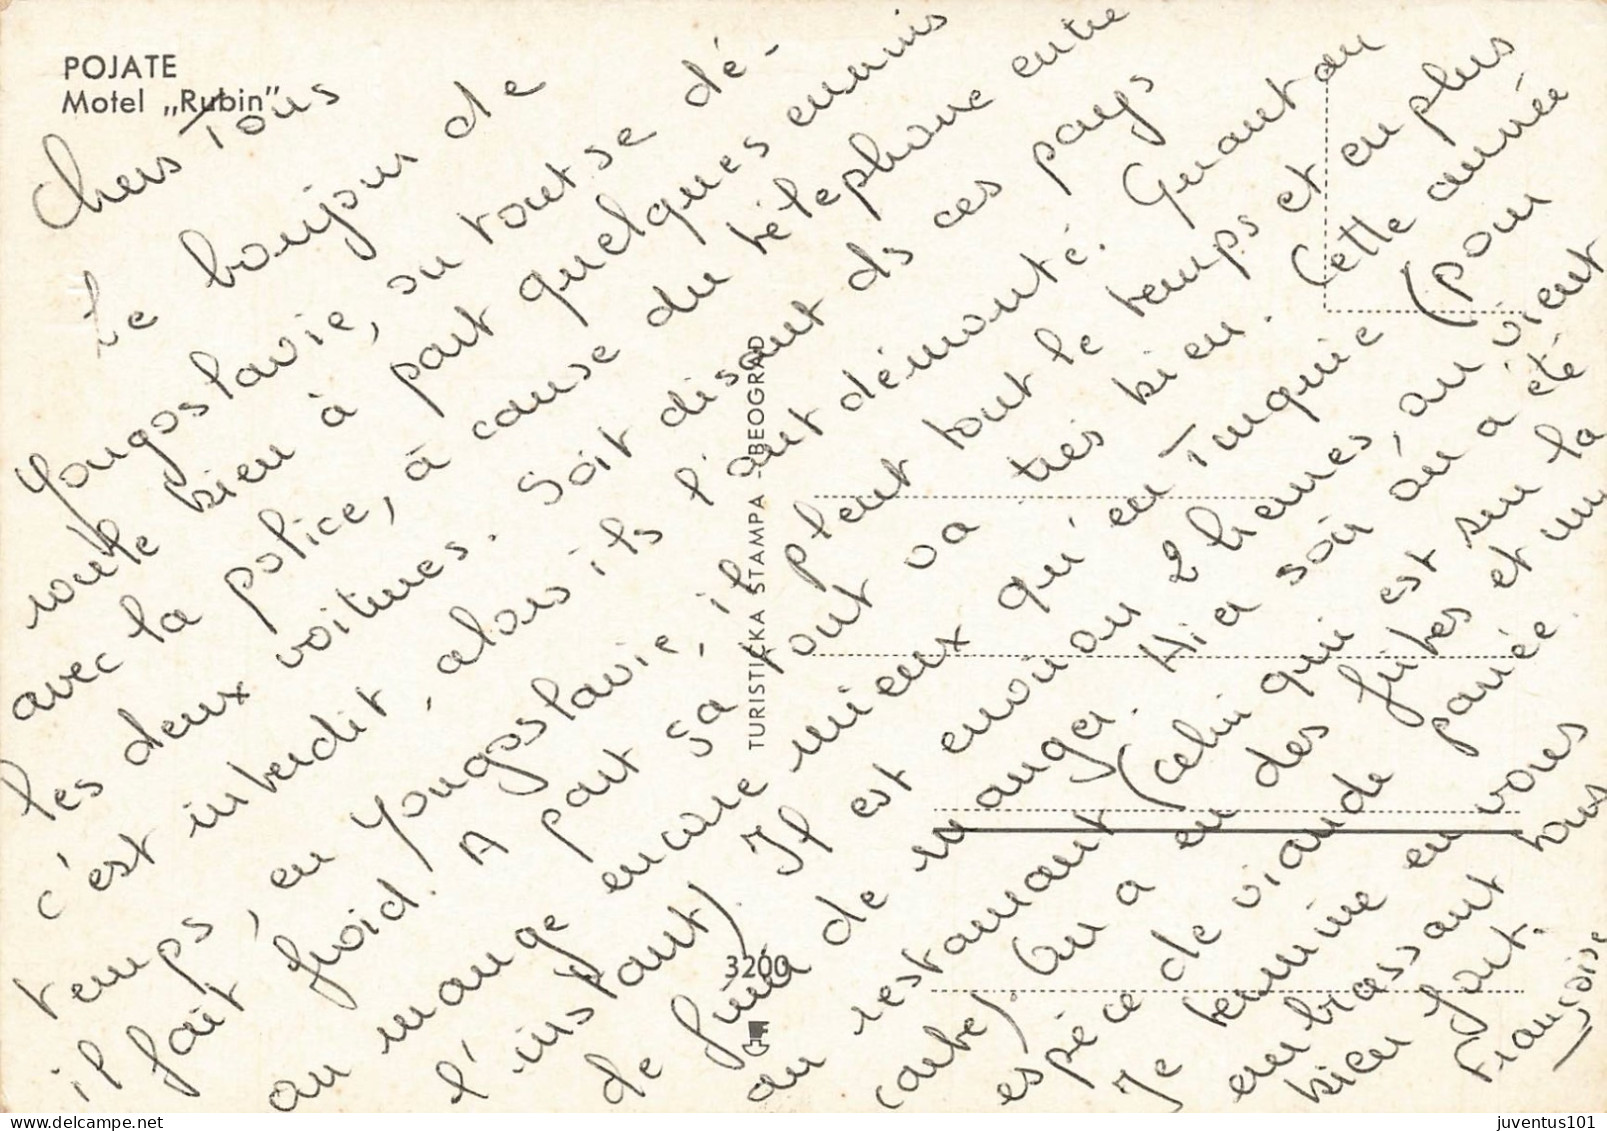 POJATE
Motel „Rubin"
Chers Tous
Le bonjour de
Yougoslavie, où tout se dé-
roule bien à part quelques ennuis
avec la police, à cause du télephone entre
les deux voitures. Soit disant ds ces pays
c'est interdit, alors ils l'ont démonté. Quant au
temps, en Yougoslavie, il pleut tout le temps et en plus
il fait froid. A part sa, tout va très bien. Cette année
on mange encore mieux qu'en Turquie (pour
l'instant). Il est environ 2 heures, on vient
de finir de manger. Hier soir on a été
au restaurant (celui qui est sur la
carte). On a eu des frites et une
espèce de viande panée.
Je termine en vous
embrassant tous
bien fort.
Françoise
TURISTIČKA ŠTAMPA - BEOGRAD
3200
juventus101